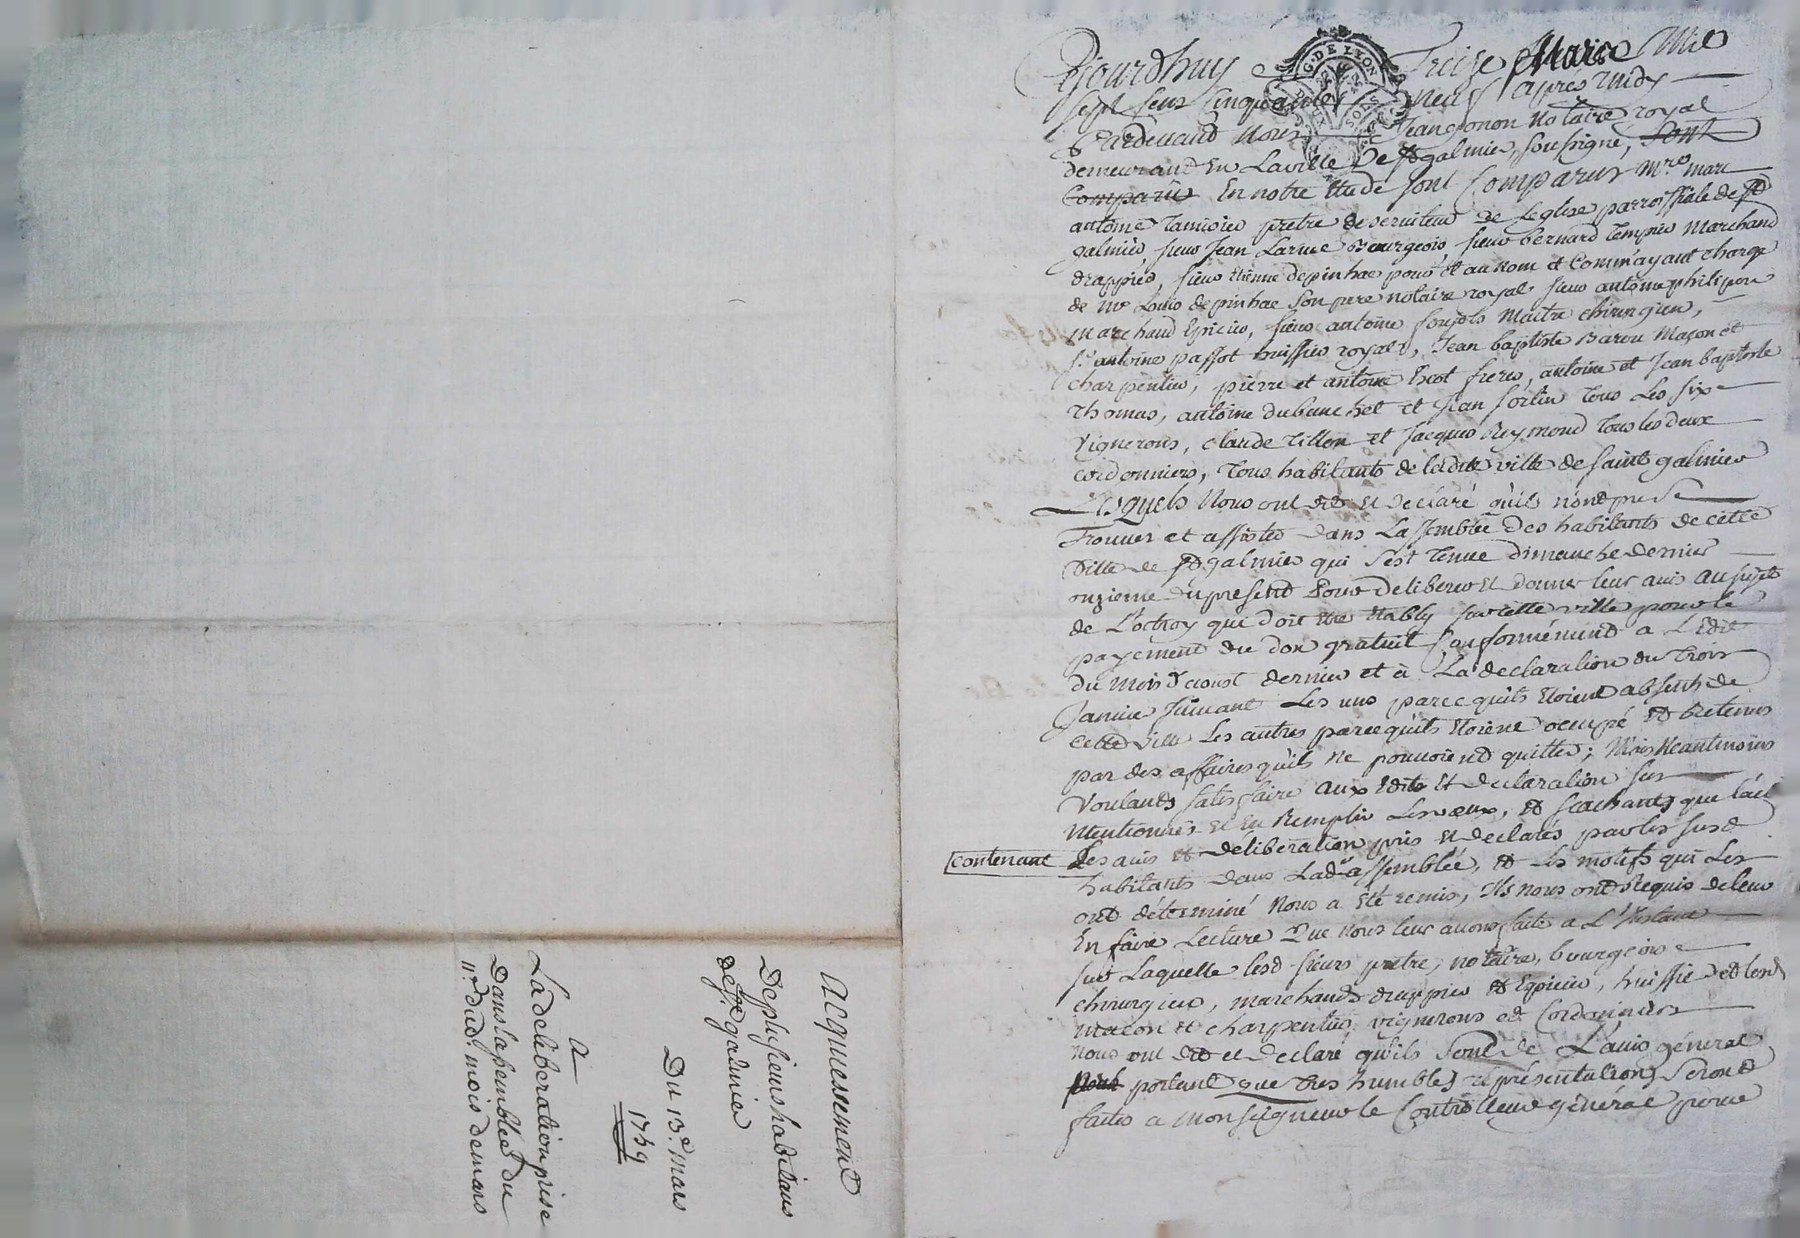 Acquiessement
De plusieurs habitans
de st galmier
Du 13e. mars
1759
a
La deliberation prise
Dans lassemblée du
11e. dud. mois de mars
G. DE LYON
Ajourdhuy Treize Mars Mil
sept cens cinquante Neuf après midy
Pardevant Nous Jean gonon Notaire royal
demeurant En La ville De st galmier, soussigné, sont
Comparus En notre Etude sont Comparus Mre marc
antoine Tamisier pretre deserviteur de Leglise parroissiale de st
galmier, sieur Jean Larue Bourgeois, sieur bernard Tempier Marchand
drappier, sieur Etienne depinhac pour et au nom et Comm'ayant charge
de Me Louis depinhac son pere notaire royal sieur antoine philipon
Marchand Epicier, sieur antoine soujols Maitre chirurgien,
sr. antoine passot huissier royal, Jean baptiste Barou Maçon et
charpentier, pierre et antoine freres, antoine et Jean baptiste
Thomas, antoine dubanchet et Jean fortin Tous Les six
Vignerons, claude Tillon et Jacques Reymond Tous les deux
cordonniers, Tous habitants de ladite ville de saint galmier
Lesquels Nous ont dit et declaré qu'ils n'ont peu se
Trouver et assister dans Lassemblée des habitants de cette
Ville de st galmier qui s'est Tenue dimanche dernier
onzieme du present Pour deliberer et donner leur avis au sujet
de L'octroy qui doit etre Etably sur cette ville pour le
payement du don gratuit Conformément a L'édit
du mois d'aoust dernier et à La declaration du Trois
Janvier suivant Les uns parce qu'ils Etoient absents de
cette ville Les autres parce qu'ils Etoient occupé et Retenus
par des affaires qu'ils ne pouvoient quitter; Mais Neantmoins
Voulants satisfaire aux Edits et declaration sus
Mentionnés et en Remplir Les vœux, et scachants que l'acte
contenant Les avis et deliberation pris et declarés par les susd
habitants dans Lade assemblée, et les motifs qui Les
ont déterminé Nous a Eté remis, Ils nous ont Requis de leur
En faire Lecture Que nous leur avons faite a L'Instant
sur Laquelle lesd sieurs pretre, notaire, bourgeois
chirurgien, marchands drappier et Epicier, huissier et lesd
macon et charpentier, vignerons et Cordonniers
nous ont dit et declaré qu'ils sont de L'avis général
portant que Tres humbles représentations seront
faites a Monseigneur le Contrôlleur général pour